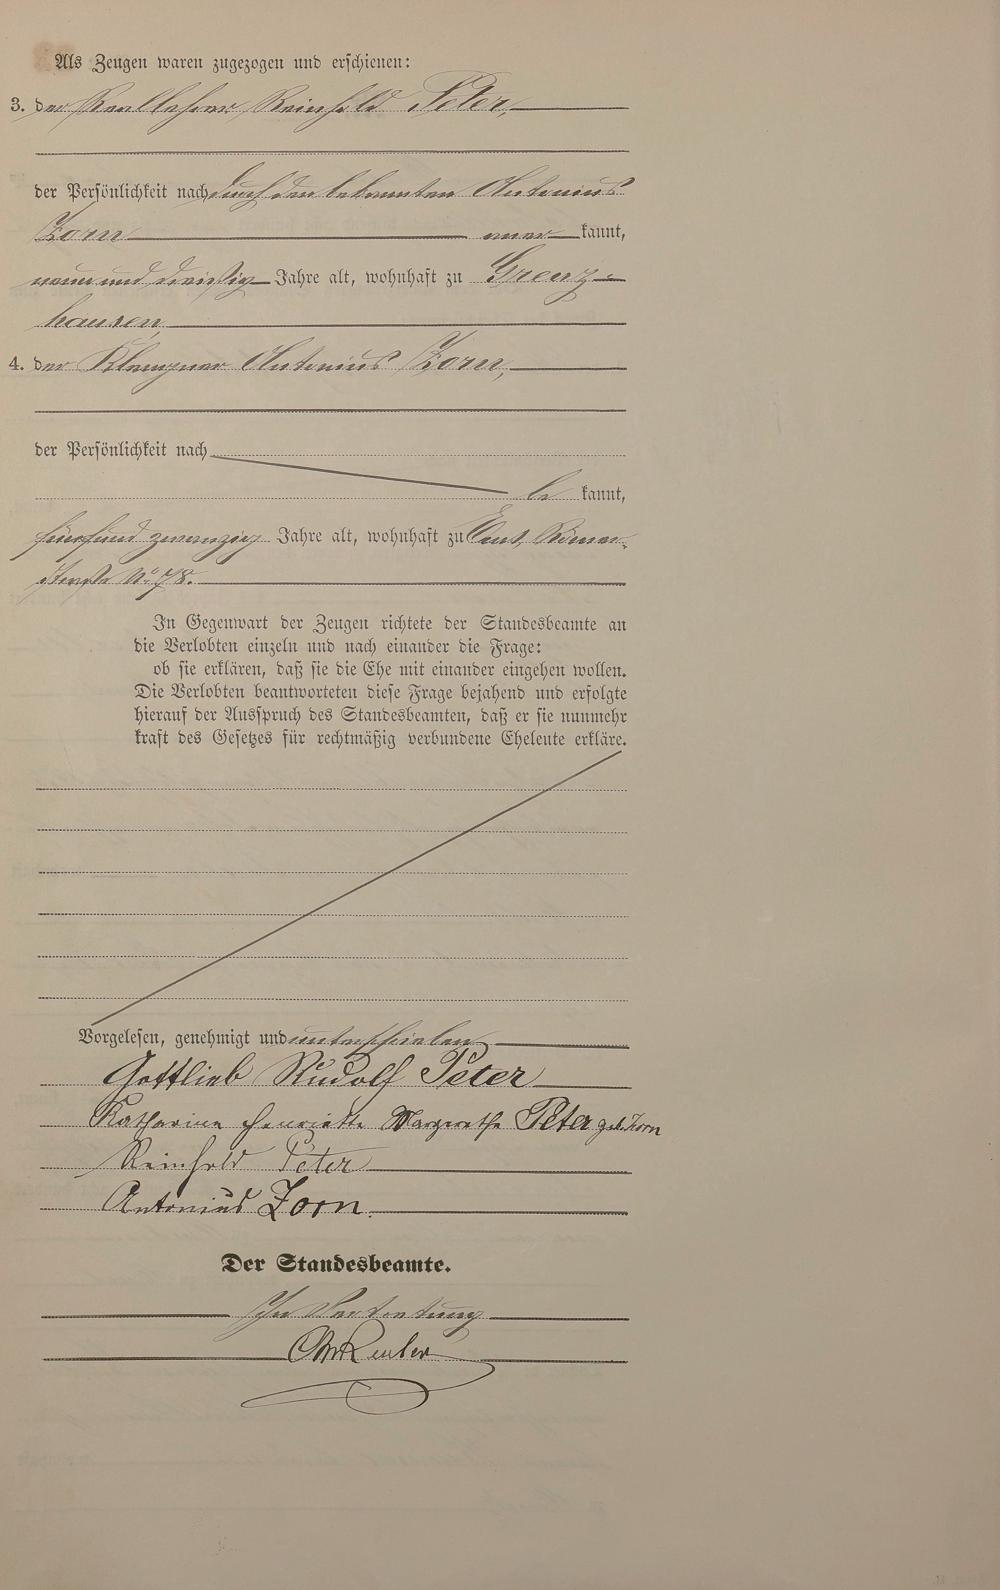 Als Zeugen waren zugezogen und erschienen:
3. der Reallehrer Reinhold Peter,
der Persönlichkeit nach durch den bekannten Antonius
Zorn aner kannt,
neun und dreißig Jahre alt, wohnhaft zu Grenz-
hausen,
4. der Klempner Antonius Zorn,
der Persönlichkeit nach
be kannt,
fünf und zwanzig Jahre alt, wohnhaft zu Ems, Römer-
straße No 78.
In Gegenwart der Zeugen richtete der Standesbeamte an
die Verlobten einzeln und nach einander die Frage:
ob sie erklären, daß sie die Ehe mit einander eingehen wollen.
Die Verlobten beantworteten diese Frage bejahend und erfolgte
hierauf der Ausspruch des Standesbeamten, daß er sie nunmehr
kraft des Gesetzes für rechtmäßig verbundene Eheleute erkläre.
Vorgelesen, genehmigt und unterschrieben
Gottlieb Rudolf Peter
Katharina Henriette Margarethe Peter geb. Zorn
Reinhold Peter
Antonius Zorn.
Der Standesbeamte.
In Vertretung